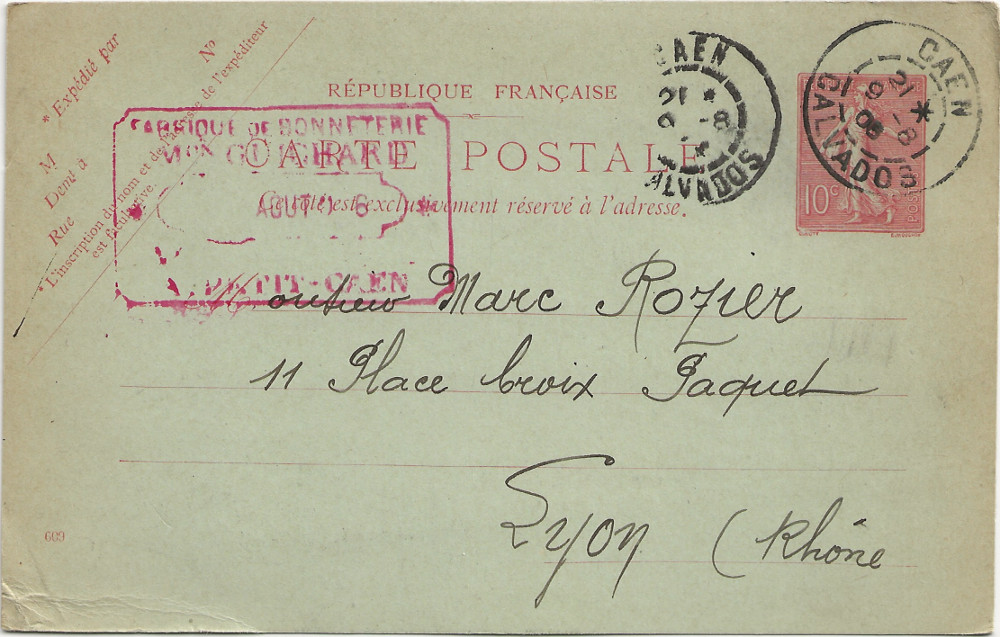 * Expédié par
M
Demt à
Rue
N°
L'inscription du nom et de l'adresse de l'expéditeur
est facultative.
RÉPUBLIQUE FRANÇAISE
CARTE POSTALE
Ce côté est exclusivement réservé à l'adresse.
FABRIQUE DE BONNETERIE
MON
AOUT 6
PETIT-CAEN
CAEN
21 *
8
CALVADOS
CAEN
21 *
9 -8
06
CALVADOS
10c
POSTES
Monsieur Marc Rozier
11 Place Croix Paquet
Lyon (Rhône
609